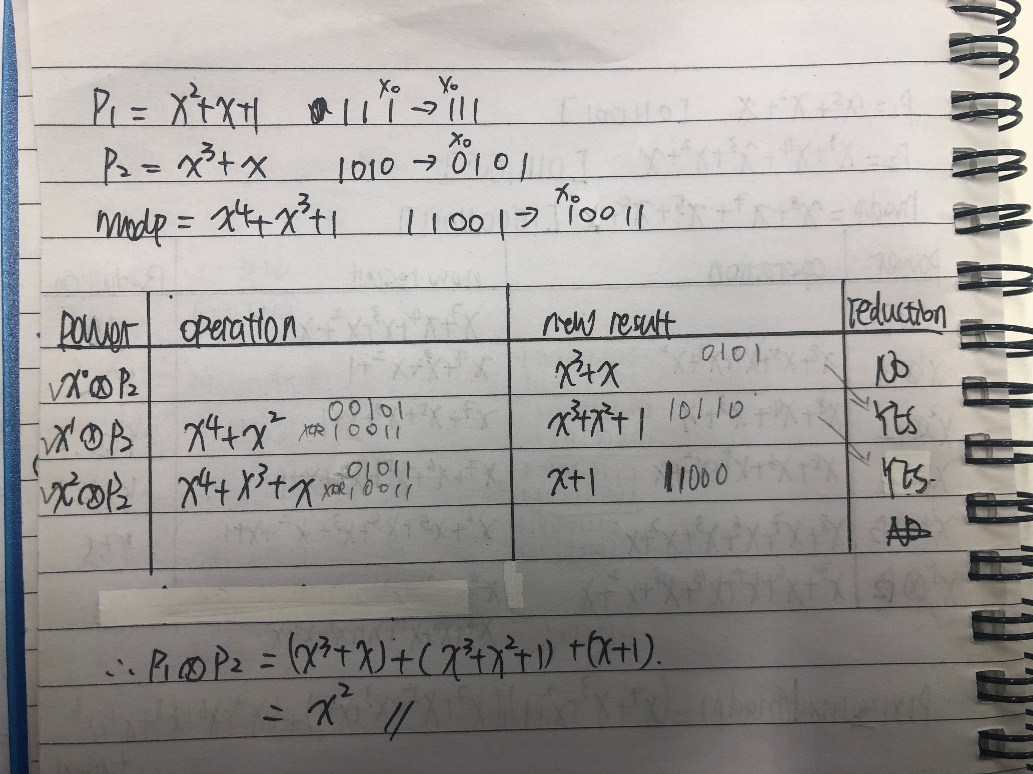 P₁ = x²+x+1 111 → 111
x₀ x₀
P₂ = x³+x 1010 → 0101
x₀
modp = x⁴+x³+1 11001 → 10011
x₀
power operation new result reduction
√x⁰⊗P₂ x³+x 0101 NO
√x¹⊗P₂ x⁴+x² 00101 XOR 10011 x³+x²+1 10110 YES
√x²⊗P₂ x⁴+x³+x 01011 XOR 10011 x+1 11000 YES.
NO
∴ P₁⊗P₂ = (x³+x)+(x³+x²+1)+(x+1).
= x² //